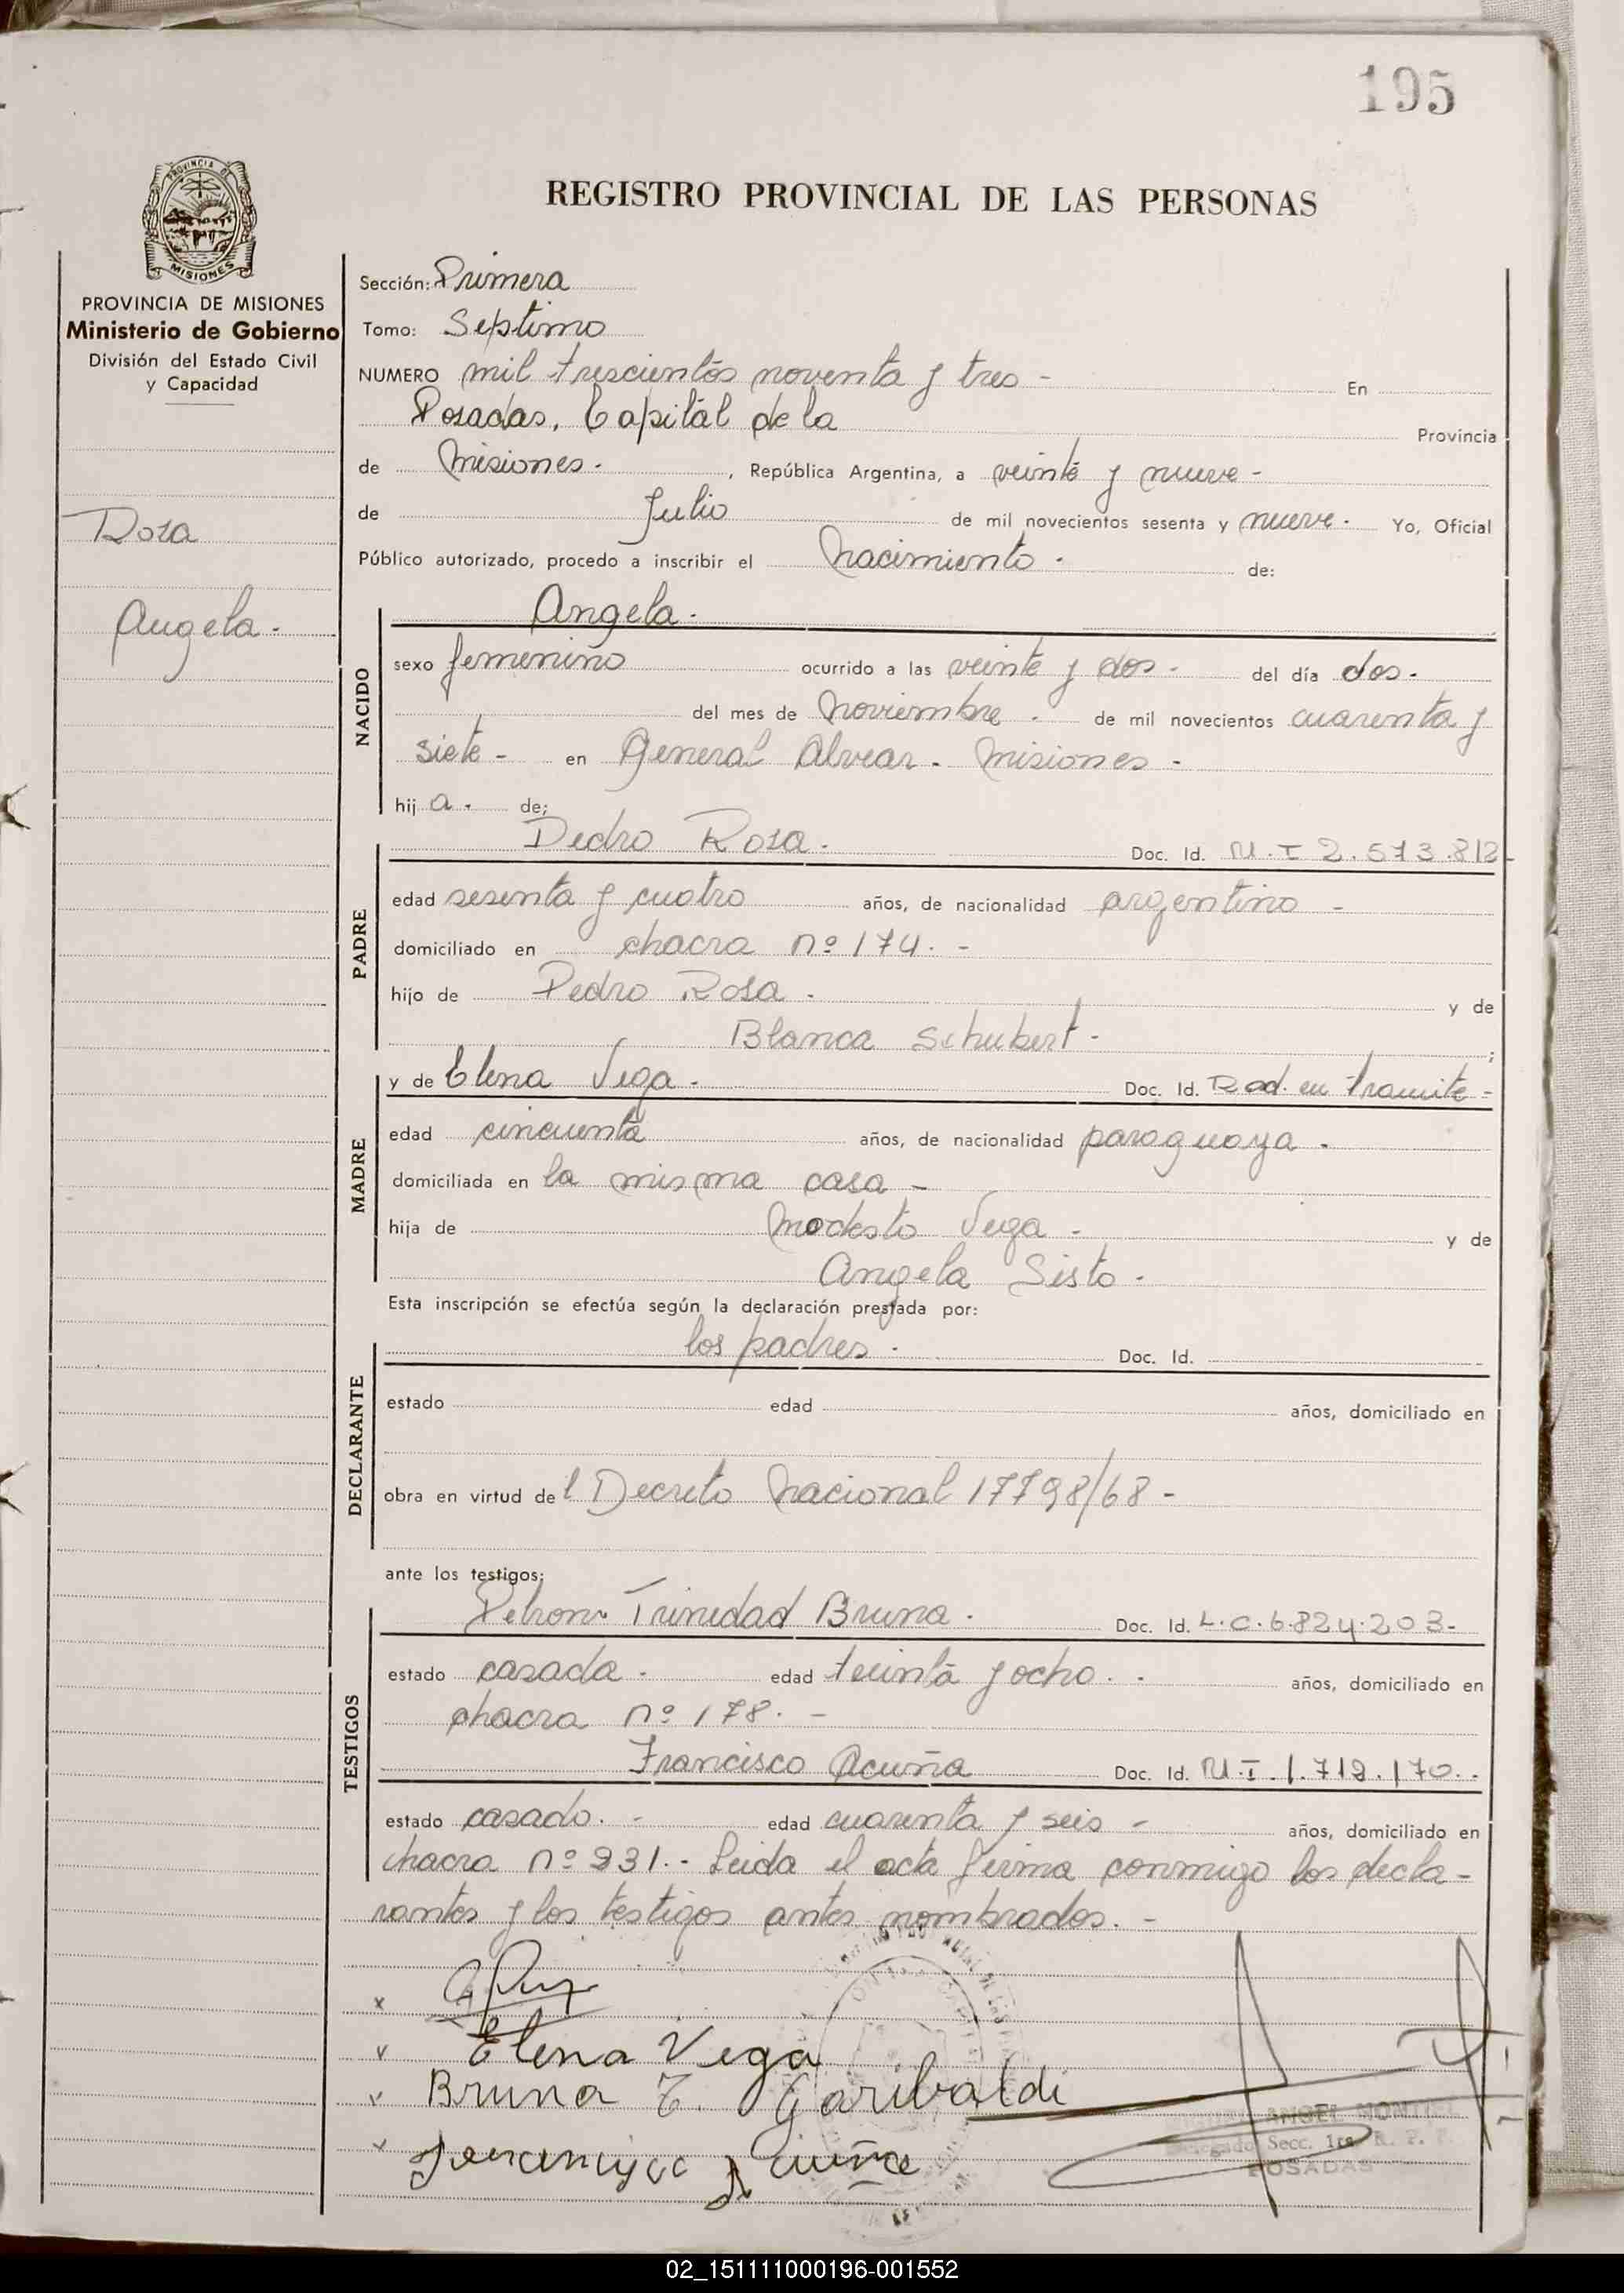 195
REGISTRO PROVINCIAL DE LAS PERSONAS
PROVINCIA DE
MISIONES
PROVINCIA DE MISIONES
Ministerio de Gobierno
División del Estado Civil
y Capacidad
Rosa
Angela.-
Sección: Primera
Tomo: Septimo
NUMERO mil trescientos noventa y tres - En
Posadas, Capital de la Provincia
de Misiones. , República Argentina, a veinte y nueve -
de Julio de mil novecientos sesenta y nueve. Yo, Oficial
Público autorizado, procedo a inscribir el nacimiento. de:
NACIDO
Angela.
sexo femenino ocurrido a las veinte y dos. del día dos.
del mes de noviembre. de mil novecientos cuarenta y
siete - en General Alvear. Misiones -
hij a. de;
PADRE
Pedro Rosa. Doc. Id. M.I 2.573.812
edad sesenta y cuatro años, de nacionalidad argentino -
domiciliado en chacra nº 174. -
hijo de Pedro Rosa. y de
Blanca Schubert. ;
MADRE
y de Elena Vega. Doc. Id. Rad. en tramite -
edad cincuenta años, de nacionalidad paraguaya.
domiciliada en la misma casa -
hija de Modesto Vega. y de
Angela Sisto.
Esta inscripción se efectúa según la declaración prestada por:
DECLARANTE
los padres. Doc. Id.
estado edad años, domiciliado en
obra en virtud de l Decreto Nacional 17798/68 -
ante los testigos:
TESTIGOS
Trinidad Bruna. Doc. Id. L.C.6.824.203-
estado casada. edad treinta y ocho. años, domiciliado en
chacra nº 178. -
Francisco Acuña Doc. Id. M.I.1.719.170.
estado casado. - edad cuarenta y seis - años, domiciliado en
chacra nº 231.- Leida el acta firma conmigo los decla-
rantes y los testigos antes nombrados. -
x
Elena Vega
Bruna T. Garibaldi
x
ANGEL MONTIEL
Delegado Secc. 1ra. R. P. P.
POSADAS
02_151111000196-001552